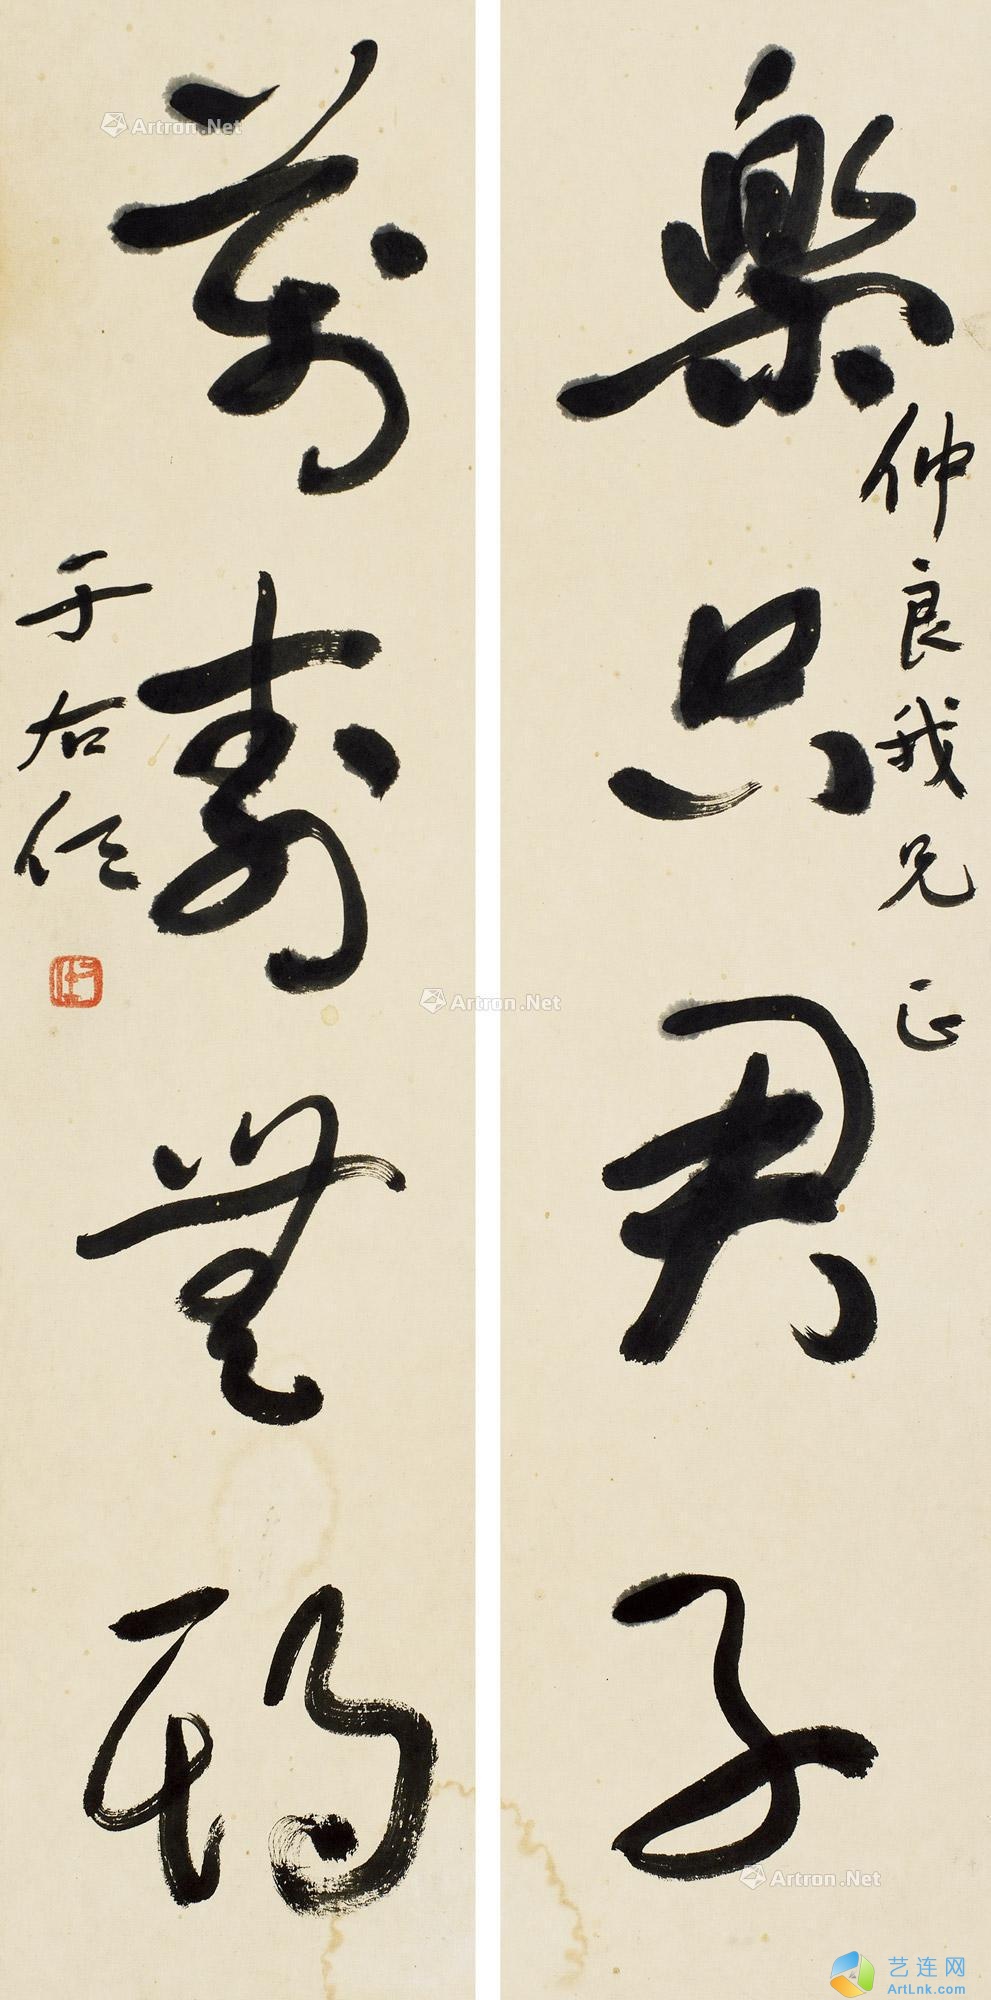 樂只君子
仲良我兄正
萬壽無期
于右任
Artron.Net
Artron.Net
Artron.Net
艺连网
ArtLnk.com